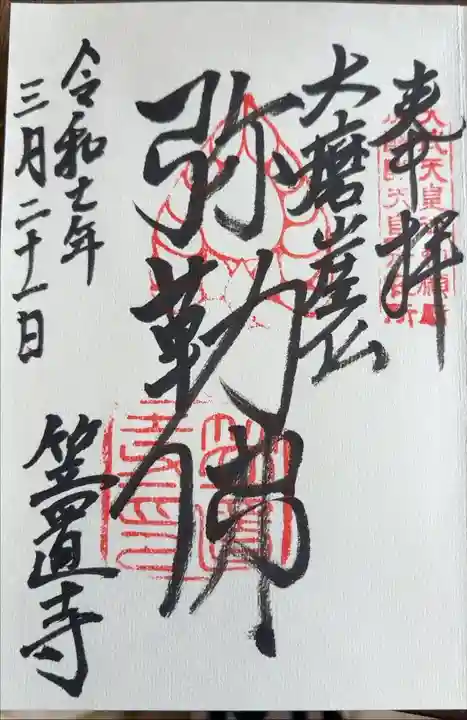 奉拝
大磨崖仏
弥勒佛
笠置寺
令和七年
三月二十一日